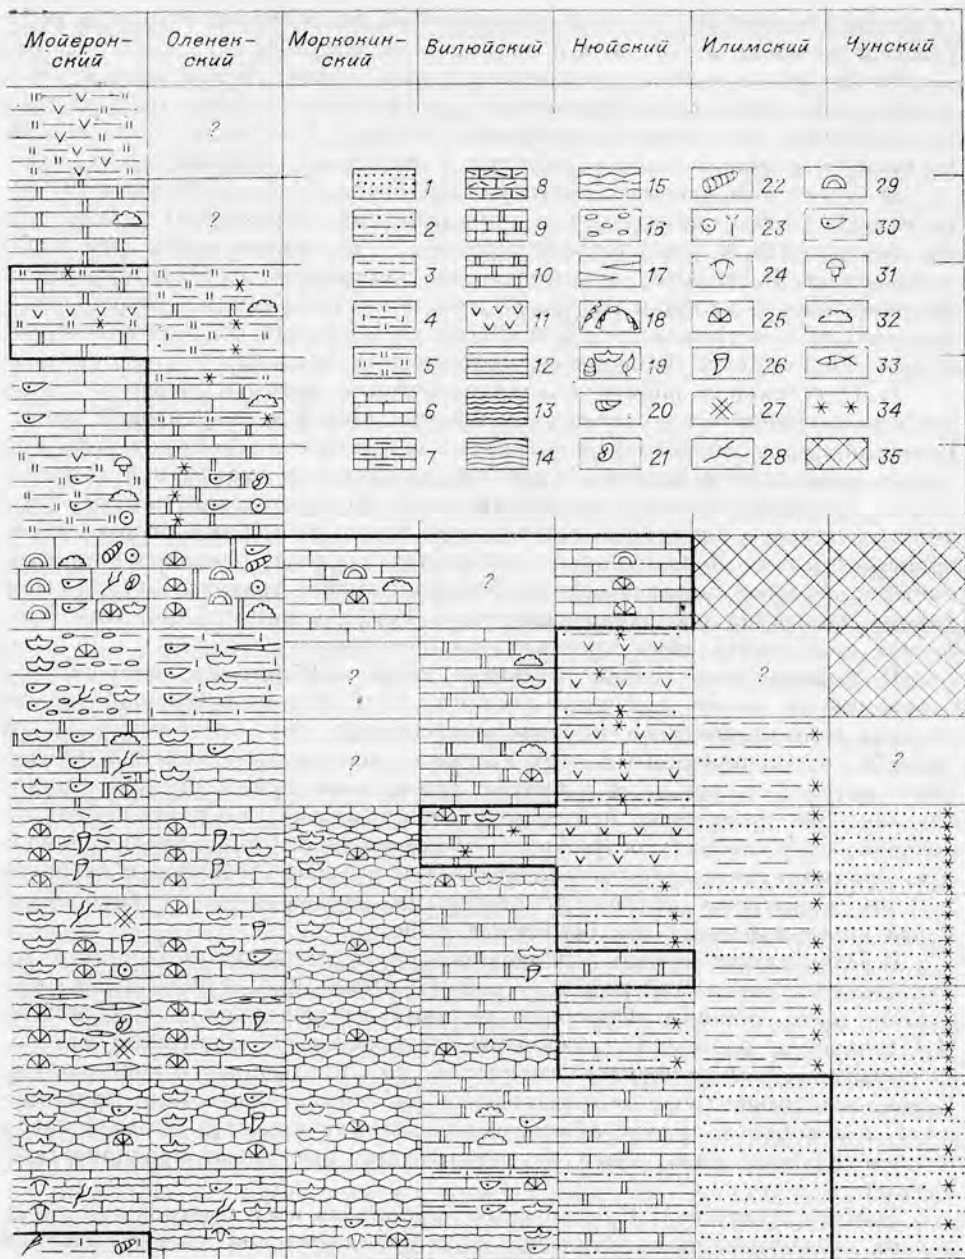 Мойерон-
ский
Оленек-
ский
Моркокин-
ский
Вилюйский
Нюйский
Илимский
Чунский
?
?
1 8 15 22 29
2 9 16 23 30
3 10 17 24 31
4 11 18 25 32
5 12 19 26 33
6 13 20 27 34
7 14 21 28 35
?
? ?
? ?